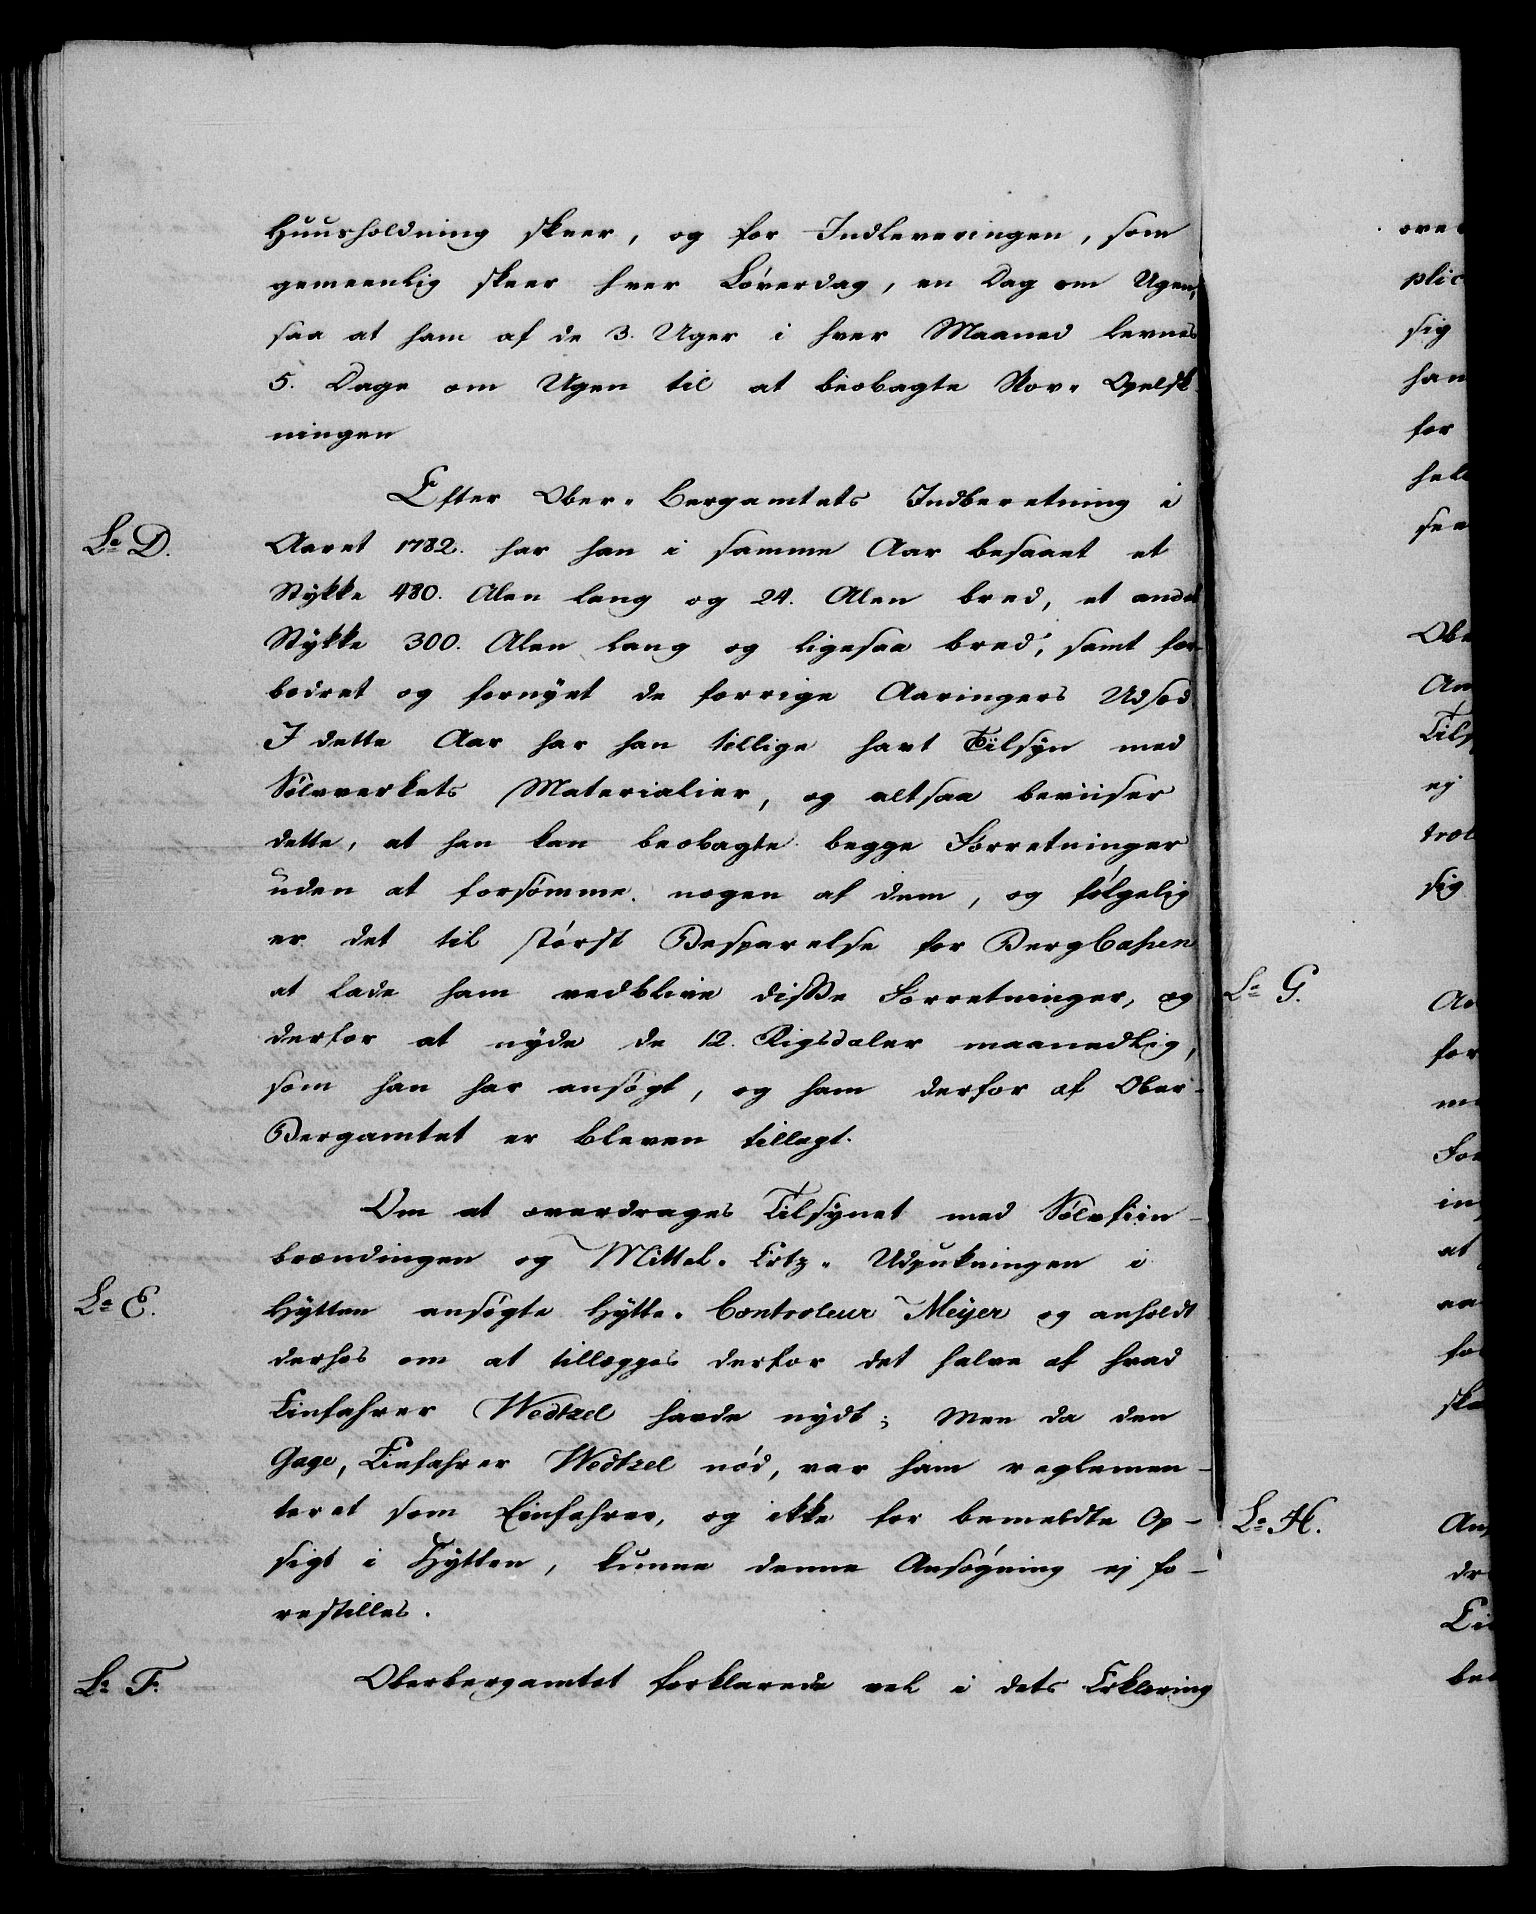 Huusholdning skeer, og for Indleveringen, som
gemeenlig skeer hver Løverdag, en Dag om Ugen,
saa at ham af de 3. Uger i hver Maaned levnes
5. Dage om Ugen til at beobagte Skov-Opelsk-
ningen
Efter Ober-Bergamtets Indberetning i
L<sup>a</sup> D. Aaret 1782. har han i samme Aar besaaet et
Stykke 480. Alen lang og 24. Alen bred, et andet
Stykke 300. Alen lang og ligesaa bred, samt for-
bedret og fornyet de forrige Aaringers Udsæd.
I dette Aar har han tillige havt Tilsyn med
Sølvverkets Materialier, og altsaa beviiser
dette, at han kan beobagte begge Forretninger
uden at forsømme nogen af dem, og følgelig
er det til størst Besparelse for BergCassen
at lade ham vedblive disse Forretninger, og
derfor at nyde de 12. Rigsdaler maanedlig,
som han har ansøgt, og ham derfor af Ober-
Bergamtet er bleven tillagt.
Om at overdrages Tilsynet med Sølvfiin-
brændingen og Mittel-Ertz-Udpukningen i
L<sup>a</sup> E. Hytten ansøgte Hytte-Controleur Meyer og anholdt
derhos om at tillægges derfor det halve af hvad
Einfahrer Wedtzel havde nydt; Men da den
Gage, Einfahrer Wedtzel nød, var ham reglemen-
teret som Einfahrer, og ikke for bemeldte Op-
sigt i Hytten, kunne denne Ansøgning ej fo-
restilles.
L<sup>a</sup> F. Oberbergamtet forklarede vel i dets Erklæring
plic
sig
han
for
L<sup>a</sup> G.
L<sup>a</sup> H.